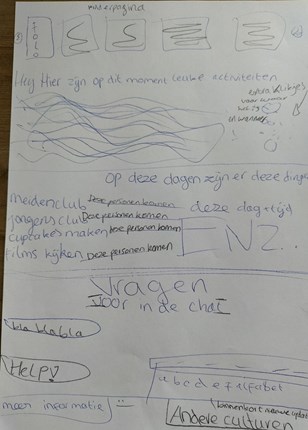 foto
Hey Hier zijn op dit moment leuke activiteiten
extra kliekjes
voor
op deze dagen zijn er deze dinge
meidenclub Deze personen komen
deze dag + tijd
jongensclub Deze personen komen
cupcakes maken Deze personen komen
films kijken Deze personen komen
ENZ..
Vragen
Voor in de chat
bla blabla
Help?
a b c d e f alfabet
meer informatie
binnenkort nieuwe update
Andere culturen